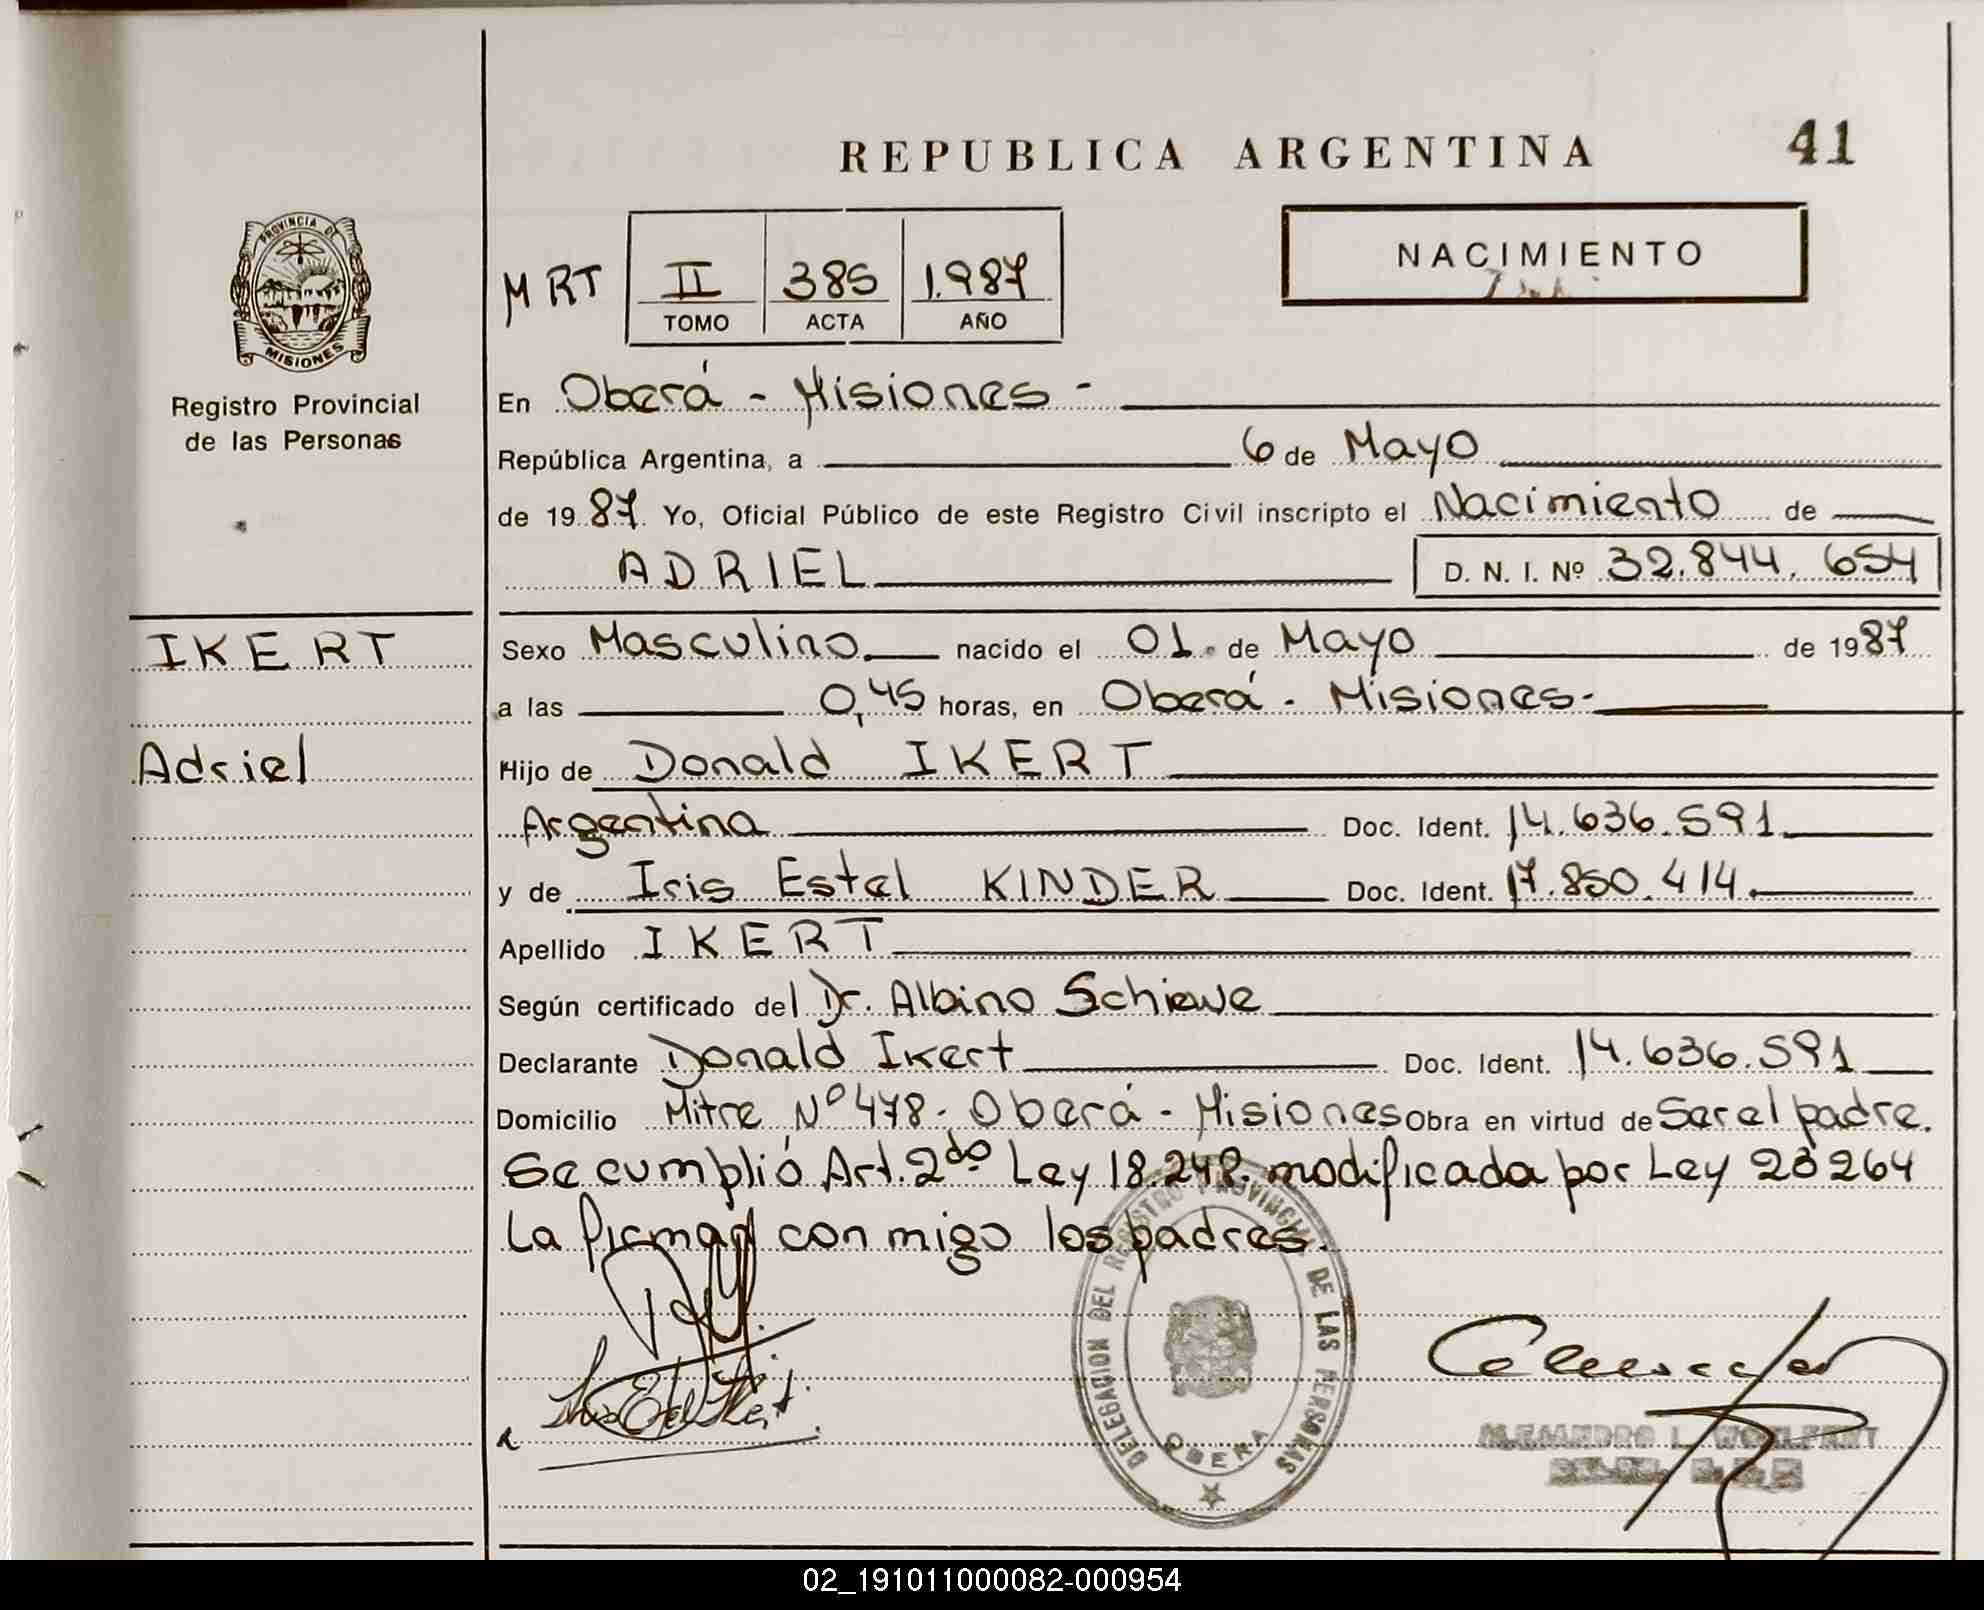 REPUBLICA ARGENTINA
41
NACIMIENTO
PROVINCIA DE
MISIONES
Registro Provincial
de las Personas
MRT
II 385 1.987
TOMO ACTA AÑO
En Oberá - Misiones -
República Argentina, a 6 de Mayo
de 1987. Yo, Oficial Público de este Registro Civil inscripto el Nacimiento de
ADRIEL D. N. I. Nº 32.844.654
IKERT
Adriel
Sexo Masculino. nacido el 01. de Mayo de 1987
a las 0,45 horas, en Oberá - Misiones -
Hijo de Donald IKERT
Argentina Doc. Ident. 14.636.591
y de Iris Estel KINDER Doc. Ident. 17.850.414.
Apellido IKERT
Según certificado del Dr. Albino Schiewe
Declarante Donald Ikert Doc. Ident. 14.636.591
Domicilio Mitre Nº 478 - Oberá - Misiones Obra en virtud de Ser el padre.
Se cumplió Art. 2do Ley 18.248. modificada por Ley 23264
La firman con migo los padres.
DELEGACION DEL REGISTRO PROVINCIAL DE LAS PERSONAS
OBERA
02_191011000082-000954